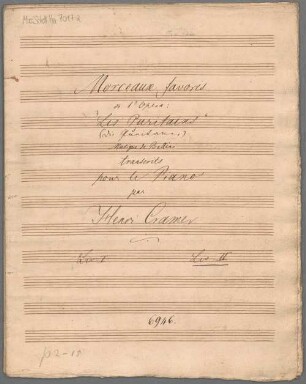 Morceaux favoris
de l'Opera:
"Les Puritains"
(die Puritaner)
Musique de Bellini
transcrits
pour le Piano
par
Henri Cramer
Liv. I Liv. II
6946.